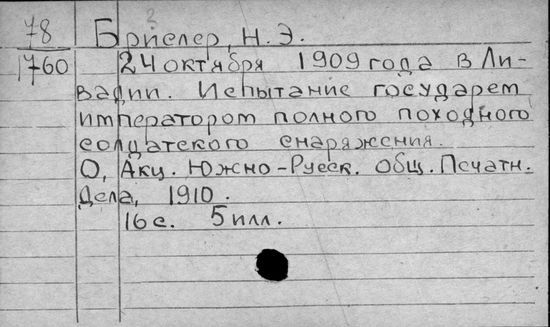 78
1760
Брислер, Н. Э.
24 октября 1909 года в Ли-
вадии. Испытание государем
императором полного походного
солдатского снаряжения.
О, Акц. Южно-Русск. общ. Печатн.
Дела, 1910.
16 с. 5 илл.